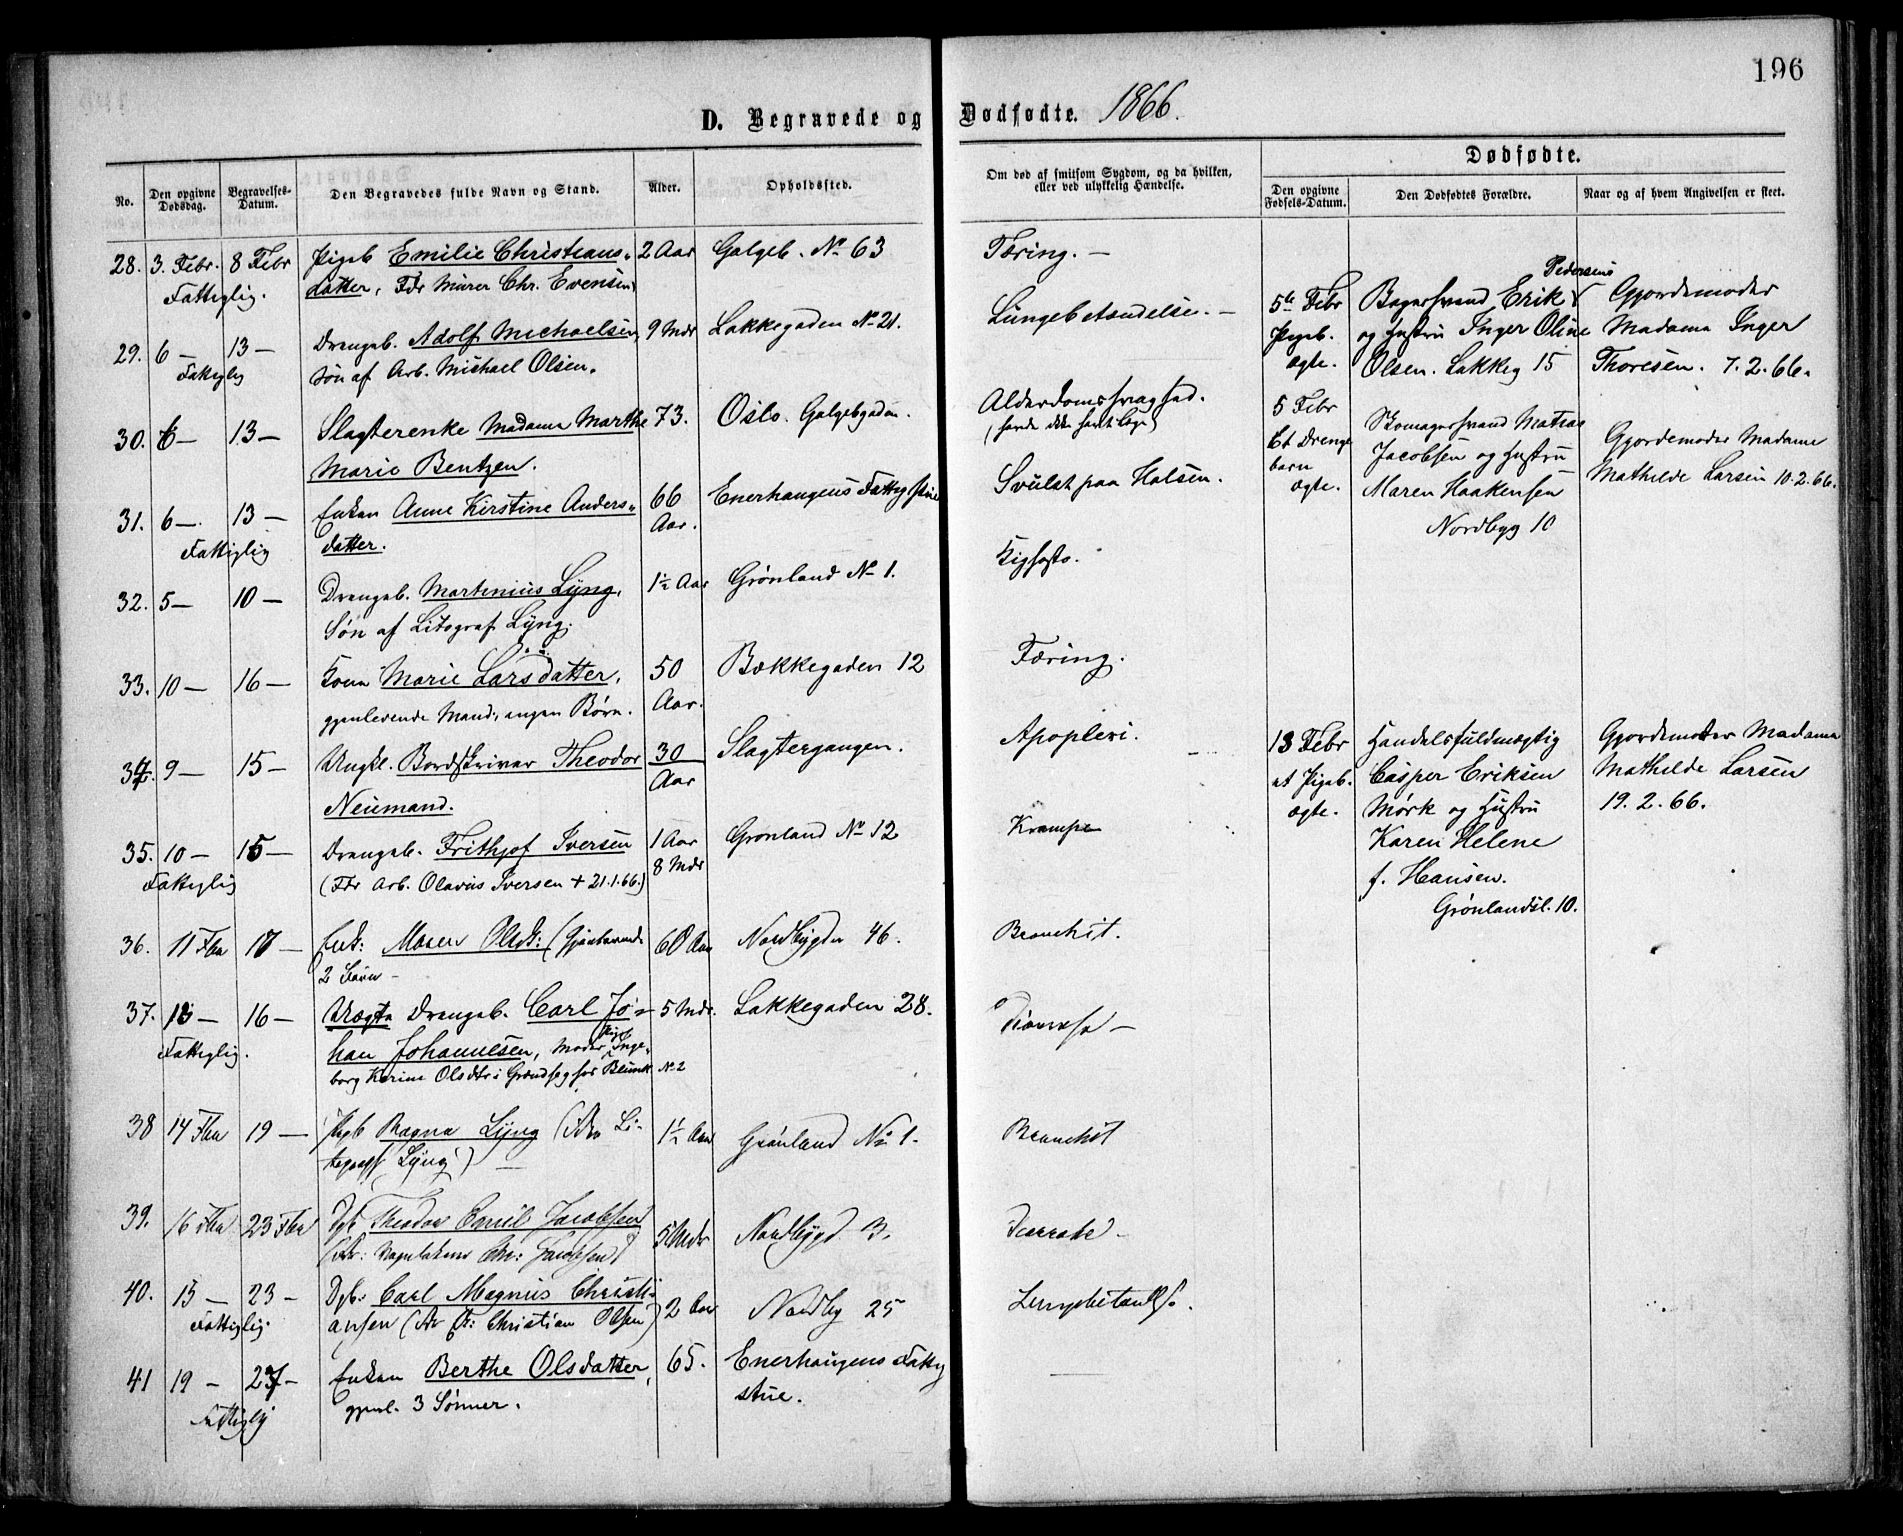 196
D. Begravede og Dødfødte. 1866.
No.
Den opgivne Dødsdag.
Begravelses-Datum.
Den Begravedes fulde Navn og Stand.
Alder.
Opholdssted.
Om død af smitsom Sygdom, og da hvilken, eller ved ulykkelig Hændelse.
Dødfødte.
Den opgivne Fødsels-Datum.
Den Dødfødtes Forældre.
Naar og af hvem Angivelsen er skeet.
28. 3. Febr. 8 Febr Pigeb Emilie Christians- 2 Aar Galgeb. No 63 Tæring. —
Fattiglig. datter, Fdr Murer Chr. Evensen
29. 6 — 13 — Drengeb. Adolf Michaelsen, 9 Mdr Lakkegaden No 21. Lungebetændelse. —
Fattiglig Søn af Arb. Michael Olsen.
30. 6 — 13 — Slagterenke Madame Marthe 73. Oslo. Galgebgaden. Alderdomssvaghed.
Marie Bentzen. (havde ikke havt Læge)
31. 6 — 13 — Enken Anne Kirstine Anders- 66 Enerhaugens Fattigstue Svulst paa Halsen.
Fattiglig datter. Aar.
32. 5 — 10 — Drengeb. Martinius Lyng, 1½ Aar Grønland No 1. Kighoste.
Søn af Litograf Lyng.
33. 10 — 16 — Kone Marie Larsdatter, 50 Bækkegaden 12 Tæring.
gjenlevende Mand, ingen Børn. Aar.
34. 9 — 15 — Ungkl. Bordskriver Theodor 30 Slagtergangen. Apoplexi.
Neumand. Aar
35. 10 — 15 — Drengeb. Frithjof Iversen 1 Aar Grønland No 12 Krampe
Fattiglig (Fdr Arb. Olavus Iversen + 21.1.66.) 8 Mdr
36. 11 Fbr 17 — Enk: Maren Olsdt: (Gjenlevende 60 Aar Nordbygdn 46. Bronchit.
2 Børn —
37. 13 — 16 — Uægte Drengeb. Carl Jo- 5 Mdr. Lakkegaden 28.
Fattiglig. han Johannesen, Moder Pige Inge-
borg Karine Olsdtr i Grændseg hos No 2
38 14 Fbr 19 — Pigb Ragna Lyng (Fdr Li- 1½ Aar Grønland No 1. Bronchit
tograf Lyng) —
39. 16 Fbr 23 Fbr Dgb Theodor Emil Jacobsen 5 Mdr Nordbygd 3.
40. 15 — 23 — Dgb: Carl Magnus Christi- 2 Aar Nordby 25
Fattiglig. ansen (Fdr Christian Olsen)
41 19 — 27 — Enken Berthe Olsdatter, 65. Enerhaugens Fattig
Fattiglig gjenl. 3 Sønner. stue.
5te Febr Bagersvend Erik Pedersens Gjordemoder
Pigeb. og Hustru Inger Oline Madame Inger
ægte. Olsen. Lakkeg 15 Thoresen. 7.2.66.
5 Febr Skomagersvend Matias Gjordemoder Madame
Et Drenge Jacobsen og Hustru Mathilde Larsen 10.2.66.
barn Maren Haakensen
ægte. Nordbyg 10
13 Febr Handelsfuldmægtig Gjordemoder Madame
et Pigeb. Casper Eriksen Mathilde Larsen
ægte. Mørk og Hustru 19.2.66.
Karen Helene
f. Hansen.
Grønlandsl. 10.